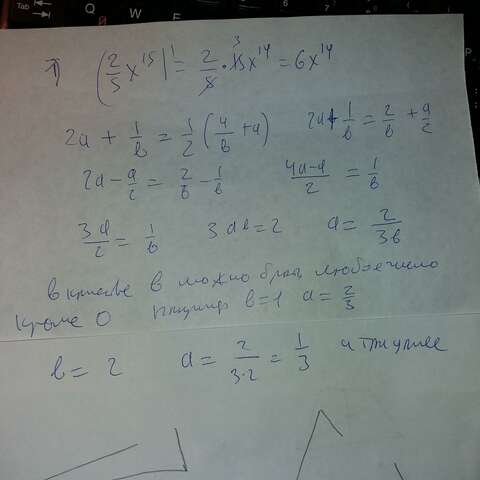 Tab Q W E
1) (2/5 x^15)' = 2/5 · 15x^14 = 6x^14
3
2a + 1/в = 1/2 (4/в + a) 2a + 1/в = 2/в + a/2
2a - a/2 = 2/в - 1/в 4a-a/2 = 1/в
3a/2 = 1/в 3aв = 2 a = 2/3в
в качестве в можно брать любое число
кроме 0 например в=1 a = 2/3
в = 2 a = 2/3·2 = 1/3 и так далее